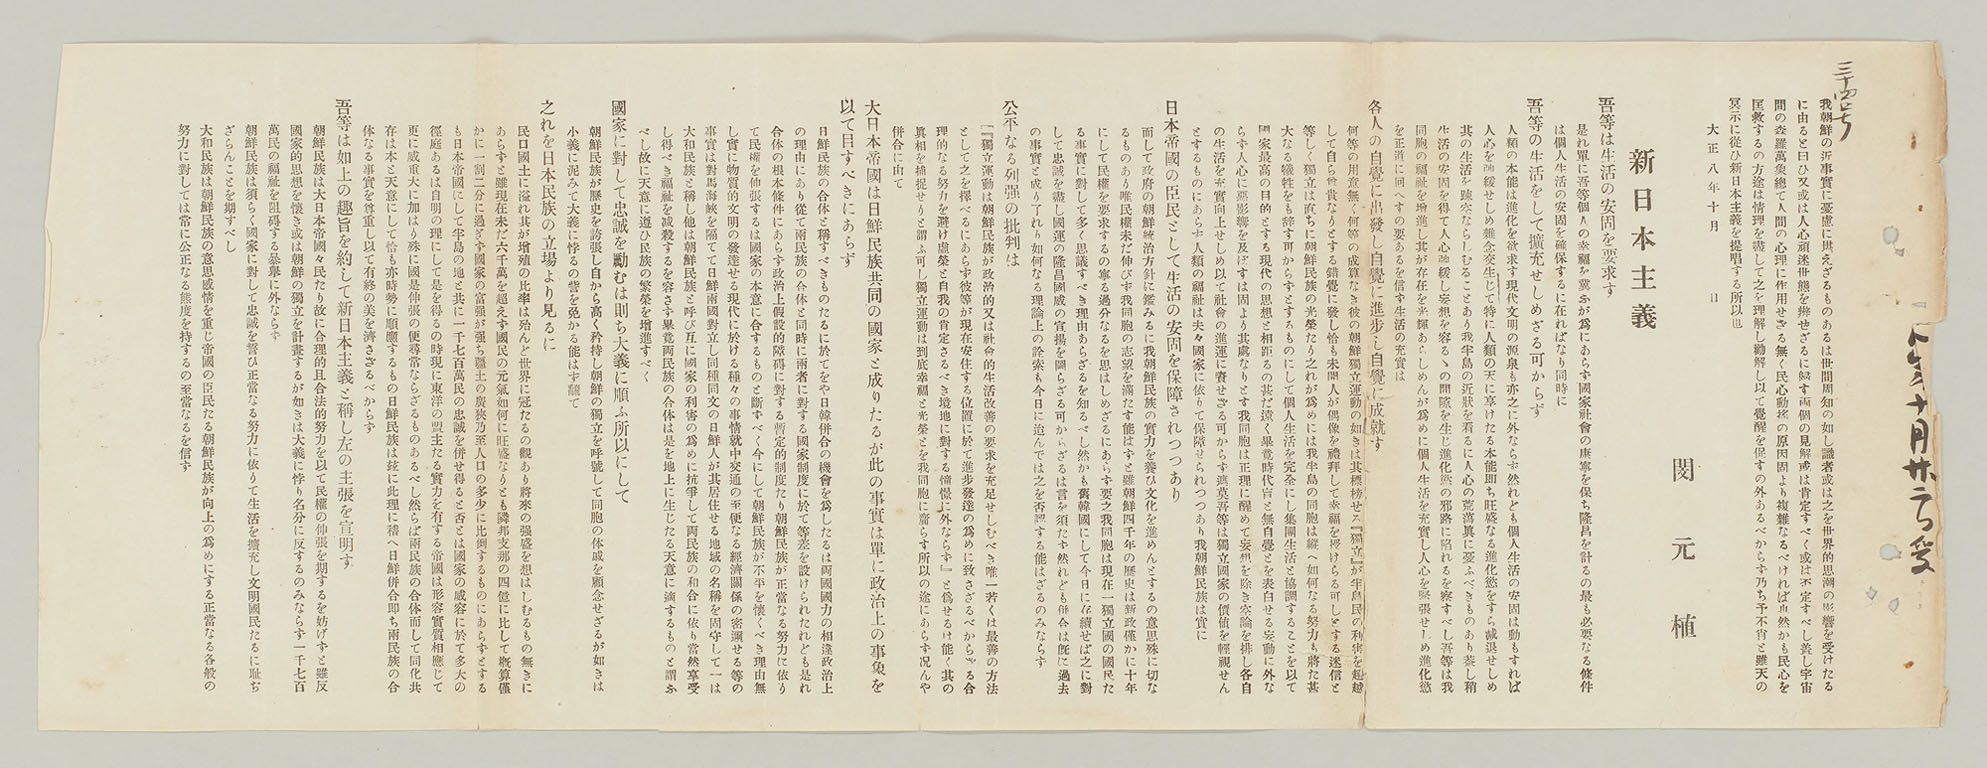 三十四七
我朝鮮の近事實に憂慮に堪えざるものあるは世間周知の如し識者或は之を世界的思潮の影響を受けたる
に由ると曰ひ又或は人心頑迷世態を辨せざるに歸す兩個の見解或は肯定すべく或は否定すべし蓋し宇宙
間の森羅萬象總て人間の心理に作用せざる無く民心動搖の原因固より複雜なるべければ也然かも民心を
匡救するの方途は情理を盡して之を理解し勸解し以て覺醒を促すの外あるべからず乃ち予不肖と雖天の
冥示に從ひ新日本主義を提唱する所以也
大正八年十月 日
閔元植
新日本主義
吾等は生活の安固を要求す
是れ單に吾等個人の幸福を冀ふが爲にあらず國家社會の康寧を保ち隆昌を計るの最も必要なる條件
は個人生活の安固を確保するに在ればなり同時に
吾等の生活をして擴充せしめざる可からず
人類の本能は進化を欲求す現代文明の源泉も亦之に外ならず然れども個人生活の安固は動もすれば
人心を弛緩せしめ雜念交生じて特に人類の天に享けたる本能卽ち旺盛なる進化慾をすら減退せしめ
其の生活を疎空ならしむることあり我半島の近狀を看るに人心の荒蕪眞に憂ふべきものあり蓋し稍
生活の安固を得て人心弛緩し妄想を容るゝの間隙を生じ進化慾の邪路に陷れるを察すべし吾等は我
同胞の福祉を增進し其が存在を光輝あらしめんが爲めに個人生活を充實し人心を緊張せしめ進化慾
を正道に向へすの要あるを信ず生活の充實は
各人の自覺に出發し自覺に進步し自覺に成就す
何等の用意無く何等の成算なき彼の朝鮮獨立運動の如きは其標榜せる『獨立』が半島民の利害を超越
して自ら尊貴なりとする錯覺に發し恰も未開人が偶像を禮拜して幸福を授けらる可しとする迷信と
等しく獨立は直ちに朝鮮民族の光榮たり之れが爲めには我半島の同胞は縱へ如何なる努力も將た甚
大なる犧牲をも辭す可からずとするものにして個人生活を完全にし集團生活と協調することを以て
國家最高の目的とする現代の思想と相距るの甚だ遠く畢竟時代盲と無自覺とを表白せる妄動に外な
らず人心に惡影響を及ぼすは固より其處なりとす我同胞は正理に醒めて妄想を除き空論を排し各自
の生活を充實向上せしめ以て社會の進運に資せざる可からず遮莫吾等は獨立國家の價値を輕視せん
とするものにあらず人類の福祉は夫々國家に依りて保障せられつつあり我朝鮮民族は實に
日本帝國の臣民として生活の安固を保障されつつあり
而して政府の朝鮮統治方針に鑑みるに我朝鮮民族の實力を養ひ文化を進めんとするの意思殊に切な
るものあり唯民權未だ伸びず我同胞の志望を滿たす能はずと雖朝鮮四千年の歷史は新政僅かに十年
にして民權を要求するの寧る過分なるを思はしめざるにあらず要之我同胞は現在一獨立國の國民た
る事實に對して多く思議すべき理由あらざるを知るべし然かも舊韓國にして今日に存續せば之に對
して忠誠を盡し國運の隆昌國威の宣揚を圖らざる可からざるは言を須たず然れども併合は旣に過去
の事實と成り了れり如何なる理論上の詮索も今日に迨んでは之を否認する能はざるのみならず
公平なる列强の批判は
『獨立運動は朝鮮民族が政治的又は社會的生活改善の要求を充足せしむべき唯一若くは最善の方法
として之を擇べるにあらず彼等が現在安住する位置に於て進步發達の爲めに致さざるべからざる合
理的なる努力を避け虛榮と自我の肯定さるべき境地に對する憧憬に外ならず』と爲せるは能く其の
眞相を捕捉せりと謂ふ可し獨立運動は到底幸福と光榮とを我同胞に齎らす所以の途にあらず况んや
併合に由て
大日本帝國は日鮮民族共同の國家と成りたるが此の事實は單に政治上の事象を
以て目すべきにあらず
日鮮民族の合体と稱すべきものたるに於てをや日韓併合の機會を爲したるは兩國國力の相違政治上
の理由にあり從て兩民族の合体と同時に兩者に對する國家制度に於て等差を設けられたれども是れ
合体の根本條件にあらず政治上假設的障碍に對する暫定的制度たり朝鮮民族が正當なる努力に依り
て民權を伸張するは國家の本意に合するものと斷ずべく今にして朝鮮民族が不平を懷くべき理由無
し實に物質的文明の發達せる現代に於ける種々の事情就中交通の至便なる經濟關係の密邇せる等の
事實は對馬海峽を隔てて日鮮兩國對立し同種同文の日鮮人が其居住せる地域の名稱を固守して一は
大和民族と稱し他は朝鮮民族と呼び互に國家の利害の爲めに抗爭して兩民族の和合に依り當然享受
し得べき福祉を減殺するを容さず畢竟兩民族の合体は是を地上に生じたる天意に適するものと謂ふ
べし故に天意に遵ひ民族の繁榮を增進すべく
國家に對して忠誠を勵むは則ち大義に順ふ所以にして
朝鮮民族が歷史を誇張し自から高く矜持し朝鮮の獨立を呼號して同胞の休戚を顧念せざるが如きは
小義に泥みて大義に悖るの訾を免かる能はず飜て
之れを日本民族の立場より見るに
民口國土に溢れ其が增殖の比率は殆んど世界に冠たるの觀あり將來の强盛を想はしむるもの無きに
あらずと雖現在未だ六千萬を超えず國民の元氣如何に旺盛なりとも隣邦支那の四億に比して槪算僅
かに一割二分に過ぎず國家の富强が强ち疆土の廣狹乃至人口の多少に比例するものにあらずとする
も日本帝國にして半島の地と共に一千七百萬民の忠誠を併せ得ると否とは國家の威容に於て多大の
徑庭あるは自明の理にして是を得るの時現に東洋の盟主たる實力を有する帝國は形容實質相應じて
更に威重大に加はり殊に國是伸張の便尋常ならざるものあるべし然らば兩民族の合体而して同化共
存は本と天意にして恰も亦時勢に順應するもの日鮮民族は玆に此理に稽へ日鮮併合卽ち兩民族の合
体なる事實を尊重し以て有終の美を濟さざるべからず
吾等は如上の趣旨を約して新日本主義と稱し左の主張を宣明す
朝鮮民族は大日本帝國々民たり故に合理的且合法的努力を以て民權の伸張を期するを妨げずと雖反
國家的思想を懷き或は朝鮮の獨立を計畫するが如きは大義に悖り名分に反するのみならず一千七百
萬民の福祉を阻碍する暴擧に外ならず
朝鮮民族は須らく國家に對して忠誠を誓ひ正當なる努力に依りて生活を擴充し文明國民たるに恥ぢ
ざらんことを期すべし
大和民族は朝鮮民族の意思感情を重じ帝國の臣民たる朝鮮民族が向上の爲めにする正當なる各般の
努力に對しては常に公正なる態度を持するの至當なるを信ず